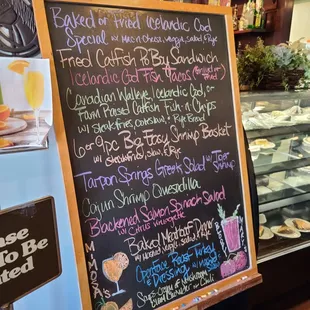 Baked or Fried Icelandic Cod
Special w/ mac n cheese,
Fried Catfish Po Boy Sandwich
Icelandic Cod Fish Tacos
Canadian Walleye, Icelandic Cod, or
Farm Raised Catfish Fish-n-Chips
w/ steak fries, coleslaw, & Rye Bread
6 or 9pc Big Easy Shrimp Basket
w/ steak fries, slaw, & Rye
Tarpon Springs Greek Salad w/ Tiger
Shrimp
Cajun Shrimp Quesadilla
Blackened Salmon Spinach Salad
w/ Citrus Vinaigrette
Baked Meatloaf Dinner
Roast Turkey
& Dressing
MIMOSA'S
ase
To Be
ated